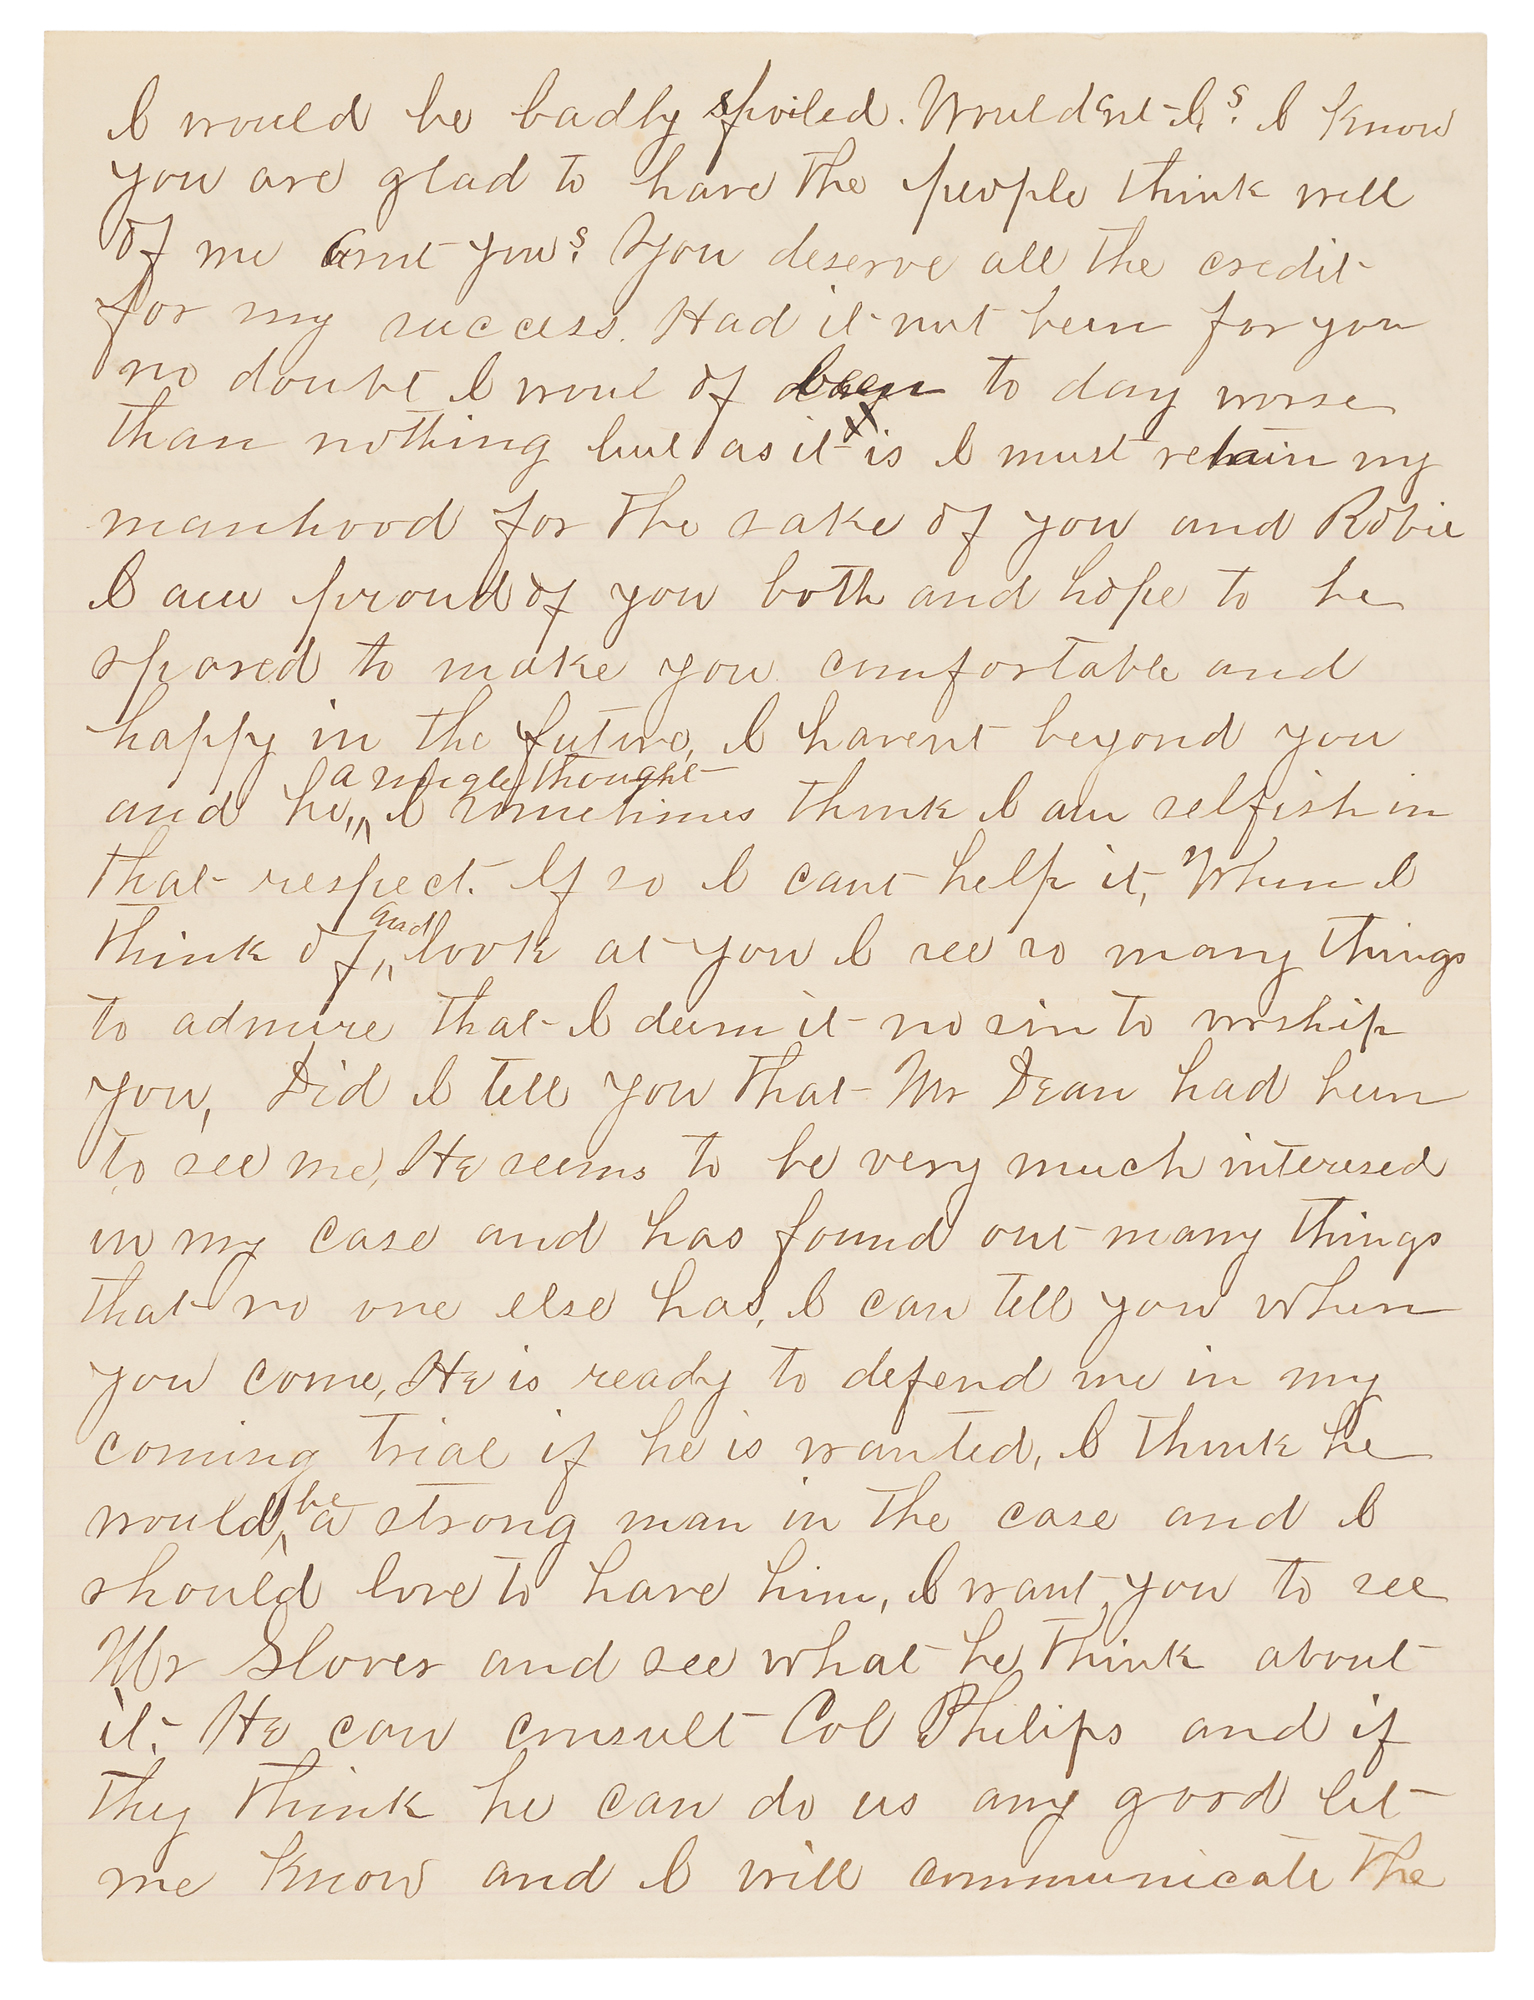 I would be badly spoiled. Wouldent I? I know
you are glad to have the people think well
of me arnt you? You deserve all the credit
for my success. Had it not been for you
no doubt I woul of been to day worse
than nothing but as it is I must retain my
manhood for the sake of you and Robie
I am proud of you both and hope to be
spared to make you comfortable and
happy in the future, I havent beyond you
a single thought
and he, I sometimes think I am selfish in
that respect. If so I cant help it, When I
and
think of, look at you I see so many things
to admire that I deem it no sin to worship
you, Did I tell you that Mr Dean had been
to see me, He seems to be very much interesed
in my case and has found out many things
that no one else has, I can tell you when
you come, He is ready to defend me in my
coming trial if he is wanted, I think he
would be a strong man in the case and I
should love to have him, I want you to see
Mr Slover and see what he think about
it. He can consult Col Philips and if
they think he can do us any good let
me know and I will communicate the